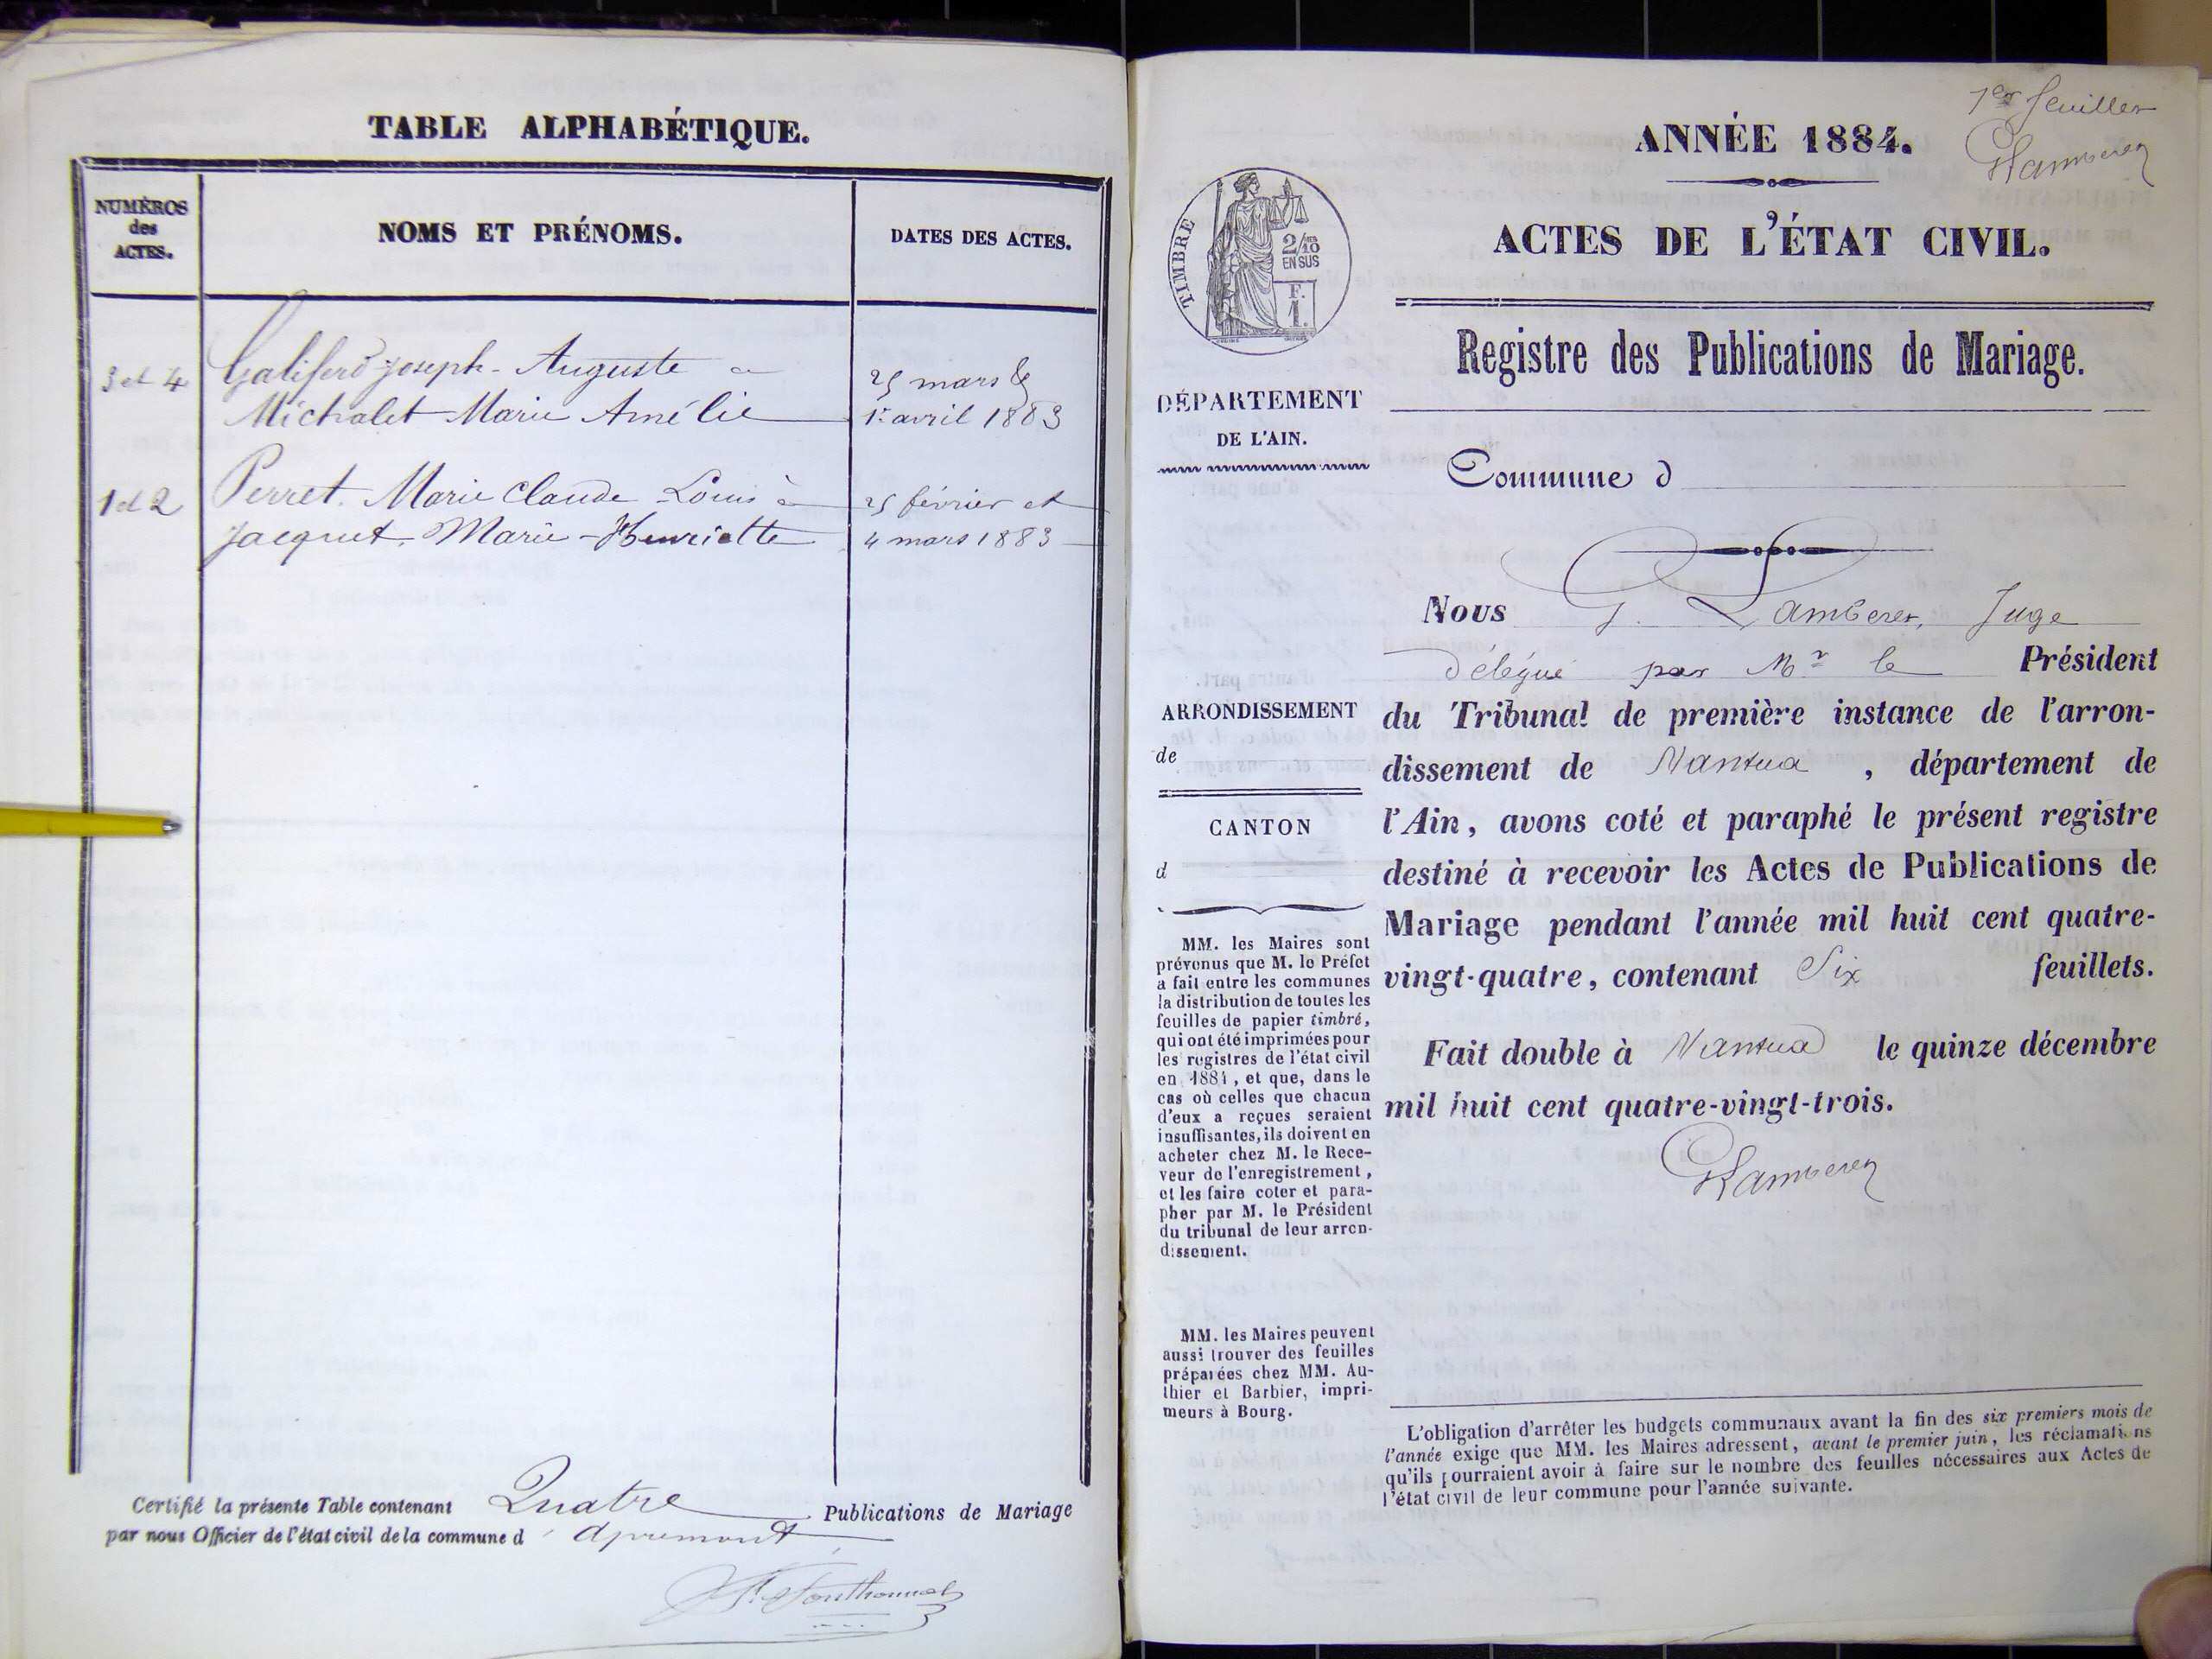 TABLE ALPHABÉTIQUE.
NUMÉROS
des
ACTES.
NOMS ET PRÉNOMS.
DATES DES ACTES.
3 et 4
Joseph-Auguste à
25 mars &
Michalet Marie Amélie
1er avril 1883
1 et 2
Perret. Marie Claude-Louis à
25 février et
Jacquet, Marie-Henriette
4 mars 1883
Certifié la présente Table contenant Quatre Publications de Mariage
par nous Officier de l'état civil de la commune d'apremont
1er feuillet
ANNÉE 1884.
TIMBRE
2/10
EN SUS
F.
1.
ACTES DE L'ÉTAT CIVIL.
Registre des Publications de Mariage.
DÉPARTEMENT
DE L'AIN.
Commune d
Nous G. Lamberet, Juge
Délégué par Mr le Président
du Tribunal de première instance de l'arron-
dissement de Nantua, département de
l'Ain, avons coté et paraphé le présent registre
destiné à recevoir les Actes de Publications de
Mariage pendant l'année mil huit cent quatre-
vingt-quatre, contenant Six feuillets.
Fait double à Nantua le quinze décembre
mil huit cent quatre-vingt-trois.
ARRONDISSEMENT
de
CANTON
d
MM. les Maires sont
prévenus que M. le Préfet
a fait entre les communes
la distribution de toutes les
feuilles de papier timbré,
qui ont été imprimées pour
les registres de l'état civil
en 1884, et que, dans le
cas où celles que chacun
d'eux a reçues seraient
insuffisantes, ils doivent en
acheter chez M. le Rece-
veur de l'enregistrement,
et les faire coter et para-
pher par M. le Président
du tribunal de leur arron-
dissement.
MM. les Maires peuvent
aussi trouver des feuilles
préparées chez MM. Au-
thier et Barbier, impri-
meurs à Bourg.
L'obligation d'arrêter les budgets communaux avant la fin des six premiers mois de
l'année exige que MM. les Maires adressent, avant le premier juin, les réclamations
qu'ils pourraient avoir à faire sur le nombre des feuilles nécessaires aux Actes de
l'état civil de leur commune pour l'année suivante.